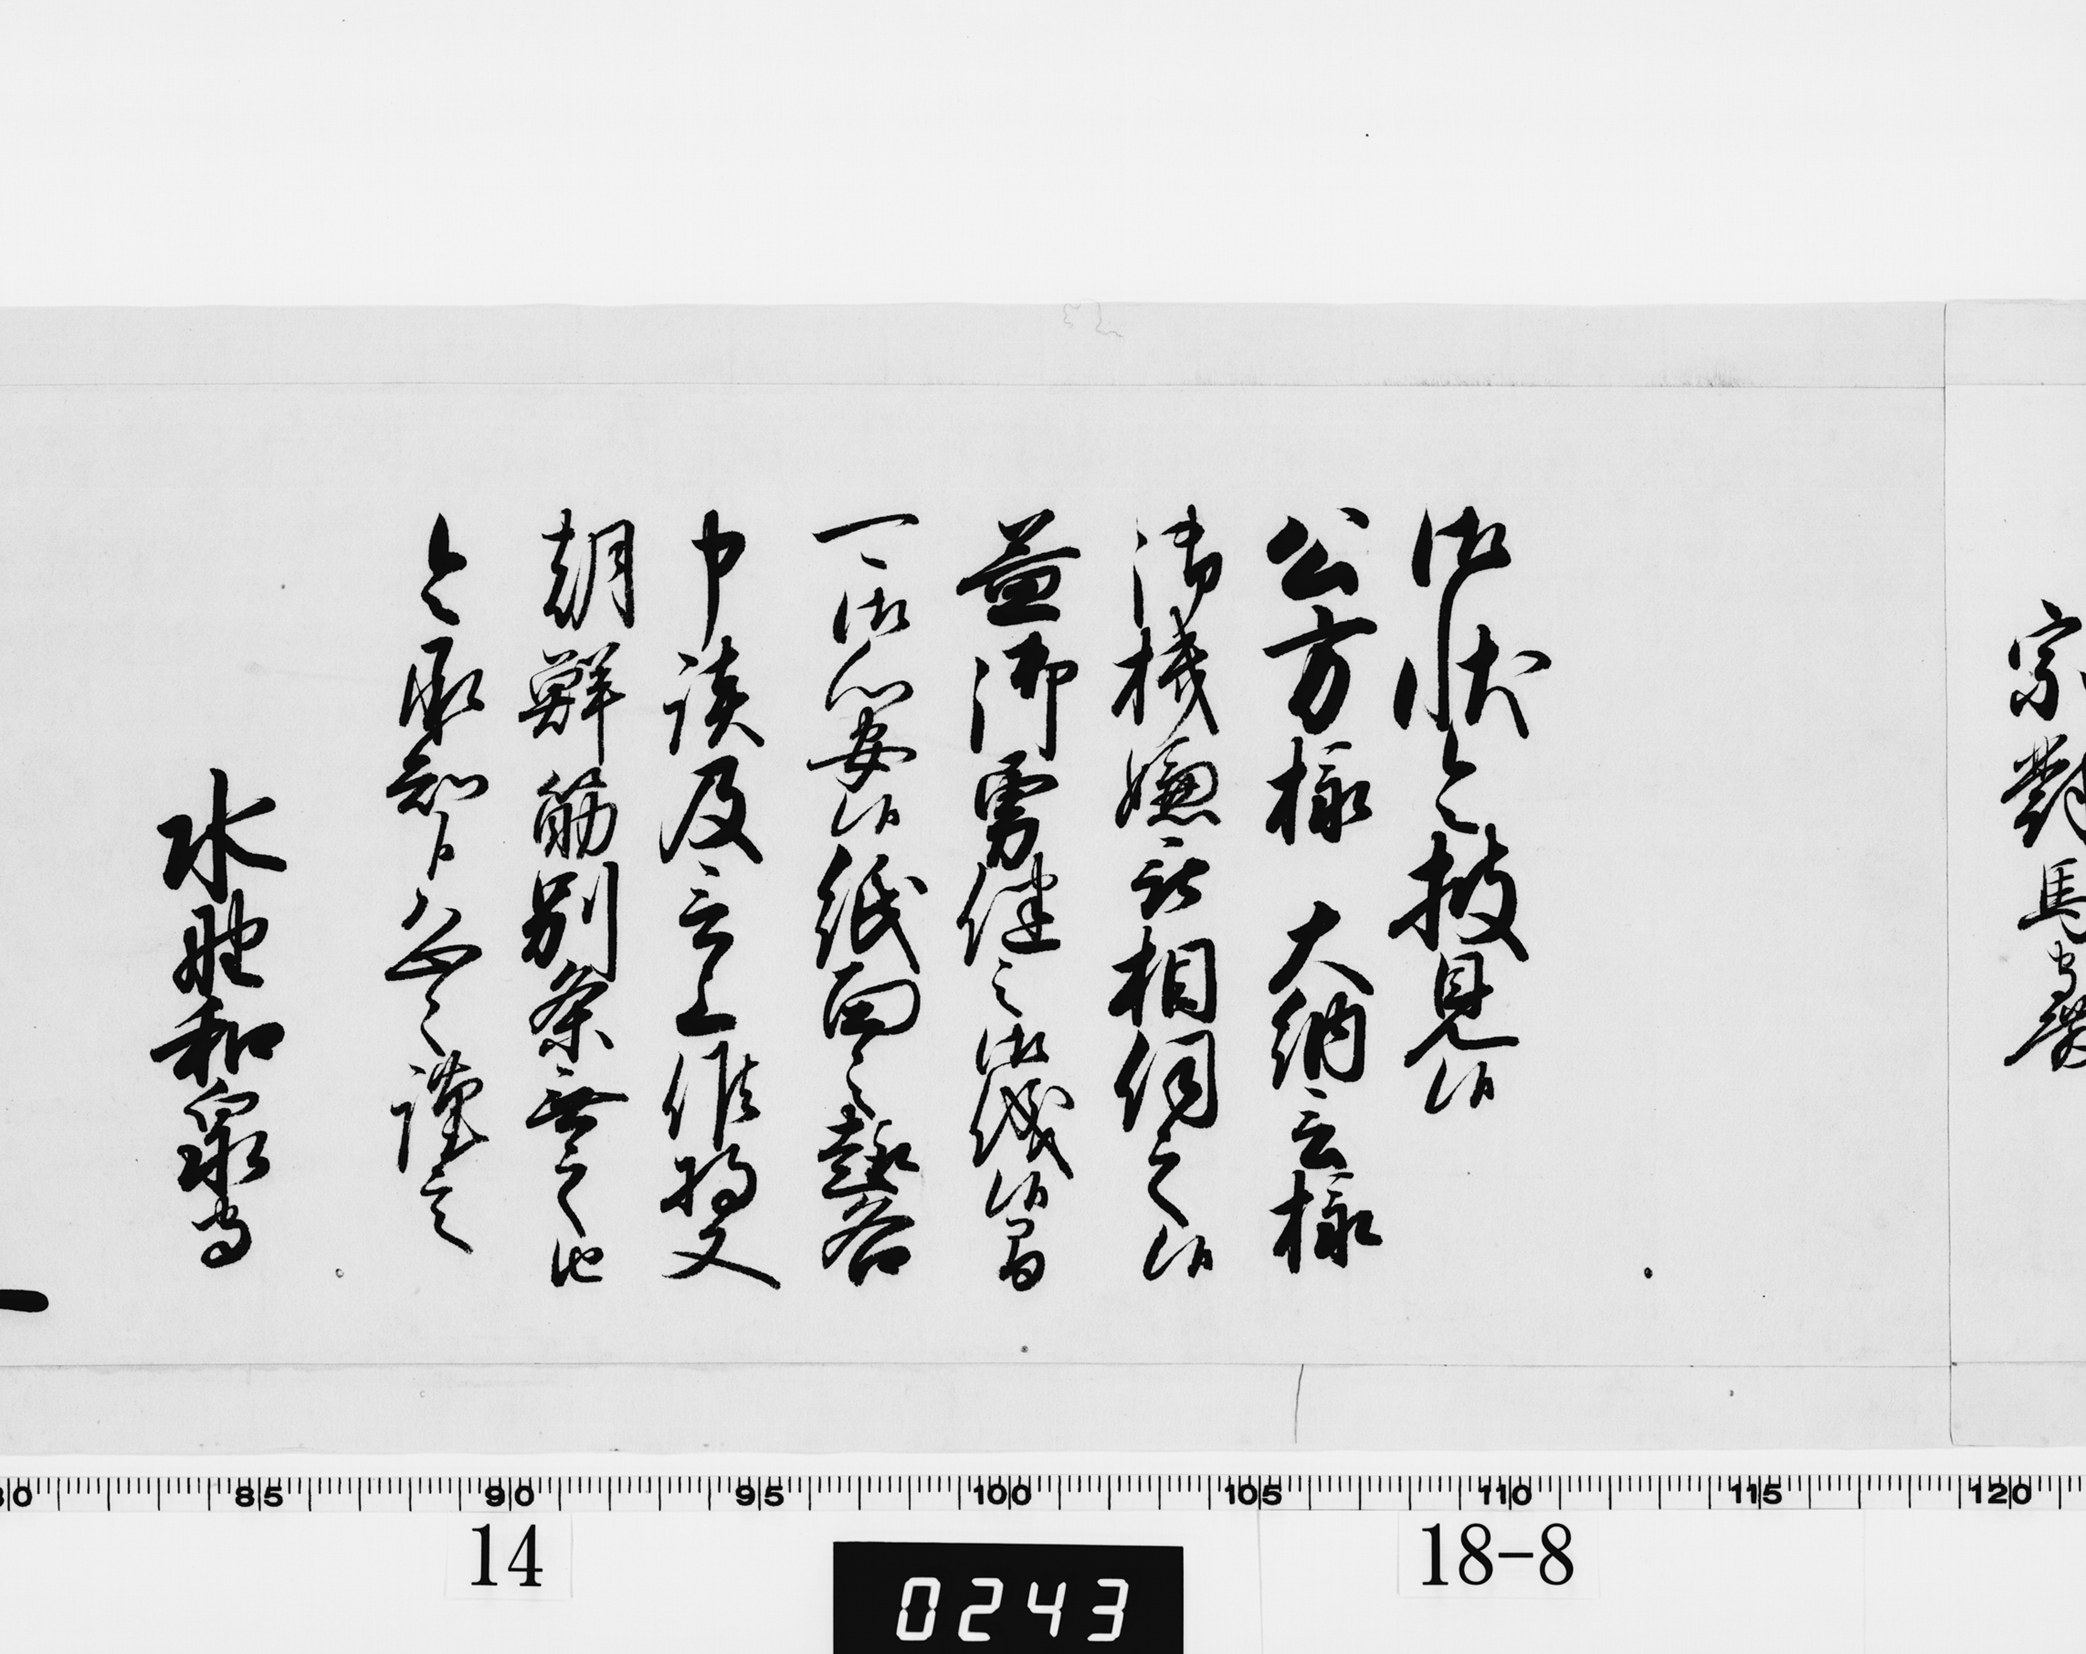 宗對馬守殿
御状令披見候
公方様 大納言様
御機嫌被相伺之候
益御勇健之御儀候間
可御心安候紙面之趣各
申談及言上候将又
朝鮮筋別条無之由
令承知候恐々謹言
水野和泉守
85 90 95 100 105 110 115 120
14 18-8
0243